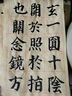 陰拍方
十於鏡
圓照念
一於關
玄開也